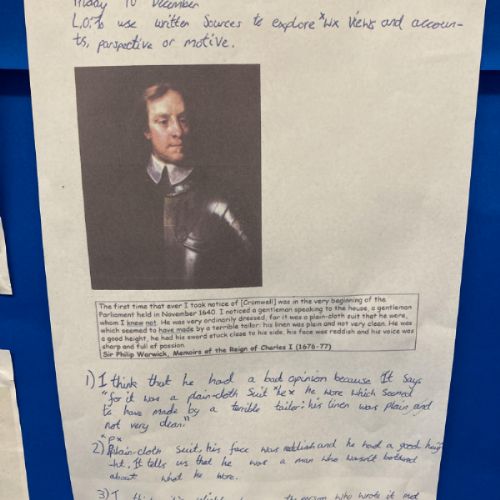 Friday 10 December
L.O: To use written sources to explore views and accoun-
ts, perspective or motive.
The first time that ever I took notice of [Cromwell] was in the very beginning of the
Parliament held in November 1640. I noticed a gentleman speaking to the house, a gentleman
whom I knew not. He was very ordinarily dressed, for it was a plain-cloth suit that he wore,
which seemed to have made by a terrible tailor: his linen was plain and not very clean. He was
a good height, he had his sword stuck close to his side, his face was reddish and his voice was
sharp and full of passion.
Sir Philip Warwick, Memoirs of the Reign of Charles I (1676-77)
1) I think that he had a bad opinion because It says
"for it was a plain-cloth suit he wore which seemed
to have made by a terrible tailor: his linen was plain and
not very clean."
2) Plain-cloth suit, his face was reddish and he had a good heig
-ht. It tells us that he was a man who wasn't bothered
about what he wore.
3) I the person who wrote it